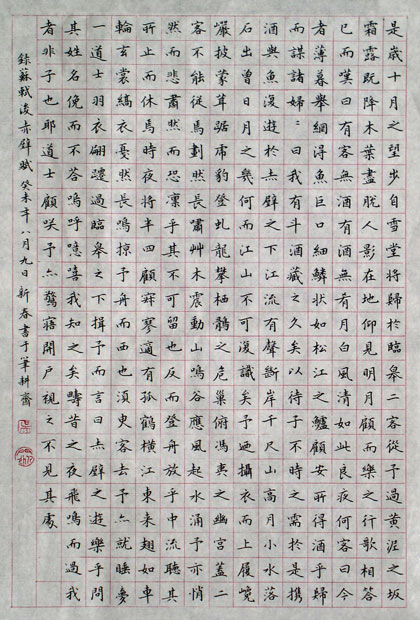 是歲十月之望步自雪堂將歸於臨皋二客從予過黃泥之坂
霜露既降木葉盡脫人影在地仰見明月顧而樂之行歌相答
已而嘆曰有客無酒有酒無肴月白風清如此良夜何客曰今
者薄暮舉網得魚巨口細鱗狀如松江之鱸顧安所得酒乎歸
而謀諸婦〻曰我有斗酒藏之久矣以待子不時之需於是攜
酒與魚復遊於赤壁之下江流有聲斷岸千尺山高月小水落
石出曾日月之幾何而江山不可復識矣予迺攝衣而上履巉
巖披蒙茸踞虎豹登虬龍攀栖鶻之危巢俯馮夷之幽宮蓋二
客不能從焉劃然長嘯艸木震動山鳴谷應風起水涌予亦悄
然而悲肅然而恐凜乎其不可留也反而登舟放乎中流聽其
所止而休焉時夜將半四顧寂寥適有孤鶴橫江東來翅如車
輪玄裳縞衣戛然長鳴掠予舟而西也須臾客去予亦就睡夢
一道士羽衣翩躚過臨皋之下揖予而言曰赤壁之遊樂乎問
其姓名俛而不答嗚呼噫嘻我知之矣疇昔之夜飛鳴而過我
者非子也耶道士顧笑予亦驚寤開戶視之不見其處
錄蘇軾後赤壁賦癸未年八月九日新春書于筆耕齋